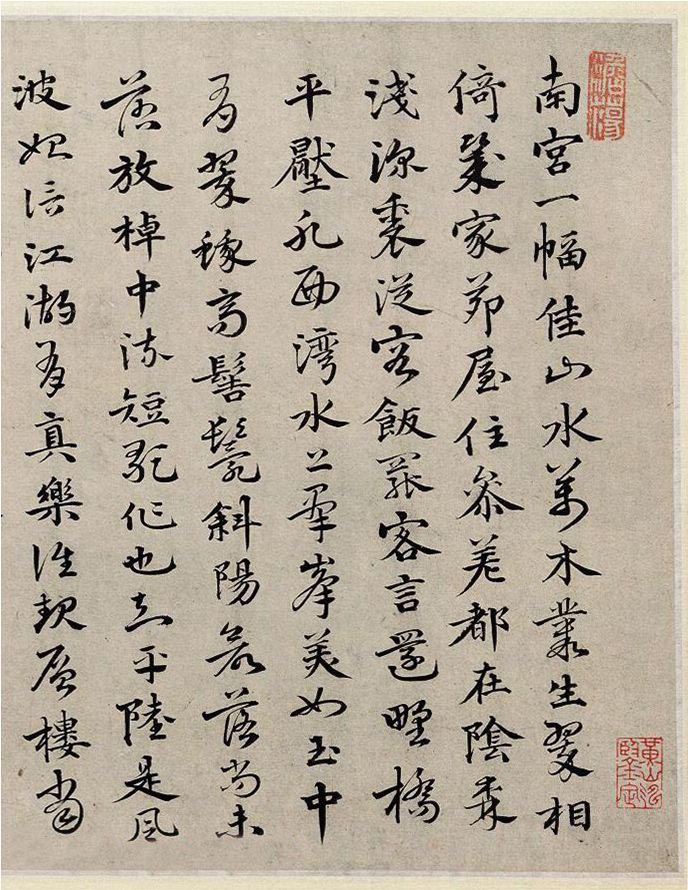 南宮一幅佳山水萬木叢生翠相
倚幾家茆屋住參差都在陰森
淺深裏從容飯罷客言還野橋
平壓西灣水上羣峯美如玉中
有翠高髻鬟斜陽欲落尚未
落放棹中流短歌作也知平陸是風
波始信江湖有真樂誰層樓當